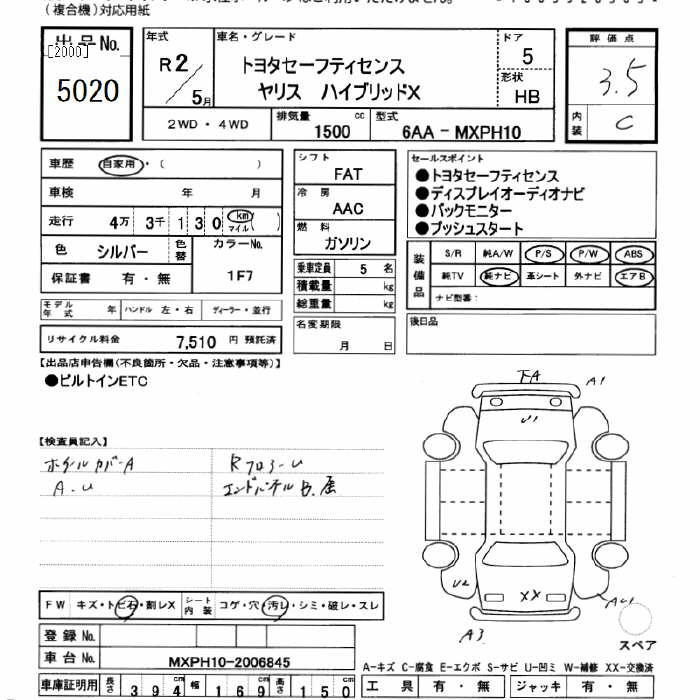 (複合機)対応用紙
出品No.
[2000]
5020
年式
R2/5月
車名・グレード
トヨタセーフティセンス
ヤリス ハイブリッドX
ドア
5
形状
HB
評価点
3.5
内装
C
2WD・4WD
排気量
1500 cc
型式
6AA-MXPH10
車歴
自家用・( )
車検 年 月
走行 4万 3千 1 3 0 km マイル( )
色 シルバー 色替 カラーNo. 1F7
保証書 有・無
モデル年式 年 ハンドル 左・右 ディーラー・並行
リサイクル料金 7,510 円 預託済
シフト
FAT
冷房
AAC
燃料
ガソリン
乗車定員 5 名
積載量 kg
総重量 kg
名変期限
月 日
セールスポイント
●トヨタセーフティセンス
●ディスプレイオーディオナビ
●バックモニター
●プッシュスタート
装備品
S/R 純A/W P/S P/W ABS
純TV 純ナビ 革シート 外ナビ エアB
ナビ型番:
後日品
【出品店申告欄(不良箇所・欠品・注意事項等)】
●ビルトインETC
【検査員記入】
ホイールカバーA
A.U
RフロアーU
エンドパネルB.歴
下A
A1
U1
U2
XX
A3
スペア
FW キズ・トビ石・割レX シート内装 コゲ・穴・汚レ・シミ・破レ・スレ
登録No.
車台No. MXPH10-2006845
車庫証明用 長さ 394 cm 幅 169 cm 高さ 150 cm
A-キズ C-腐食 E-エクボ S-サビ U-凹ミ W-補修 XX-交換済
工具 有・無 ジャッキ 有・無